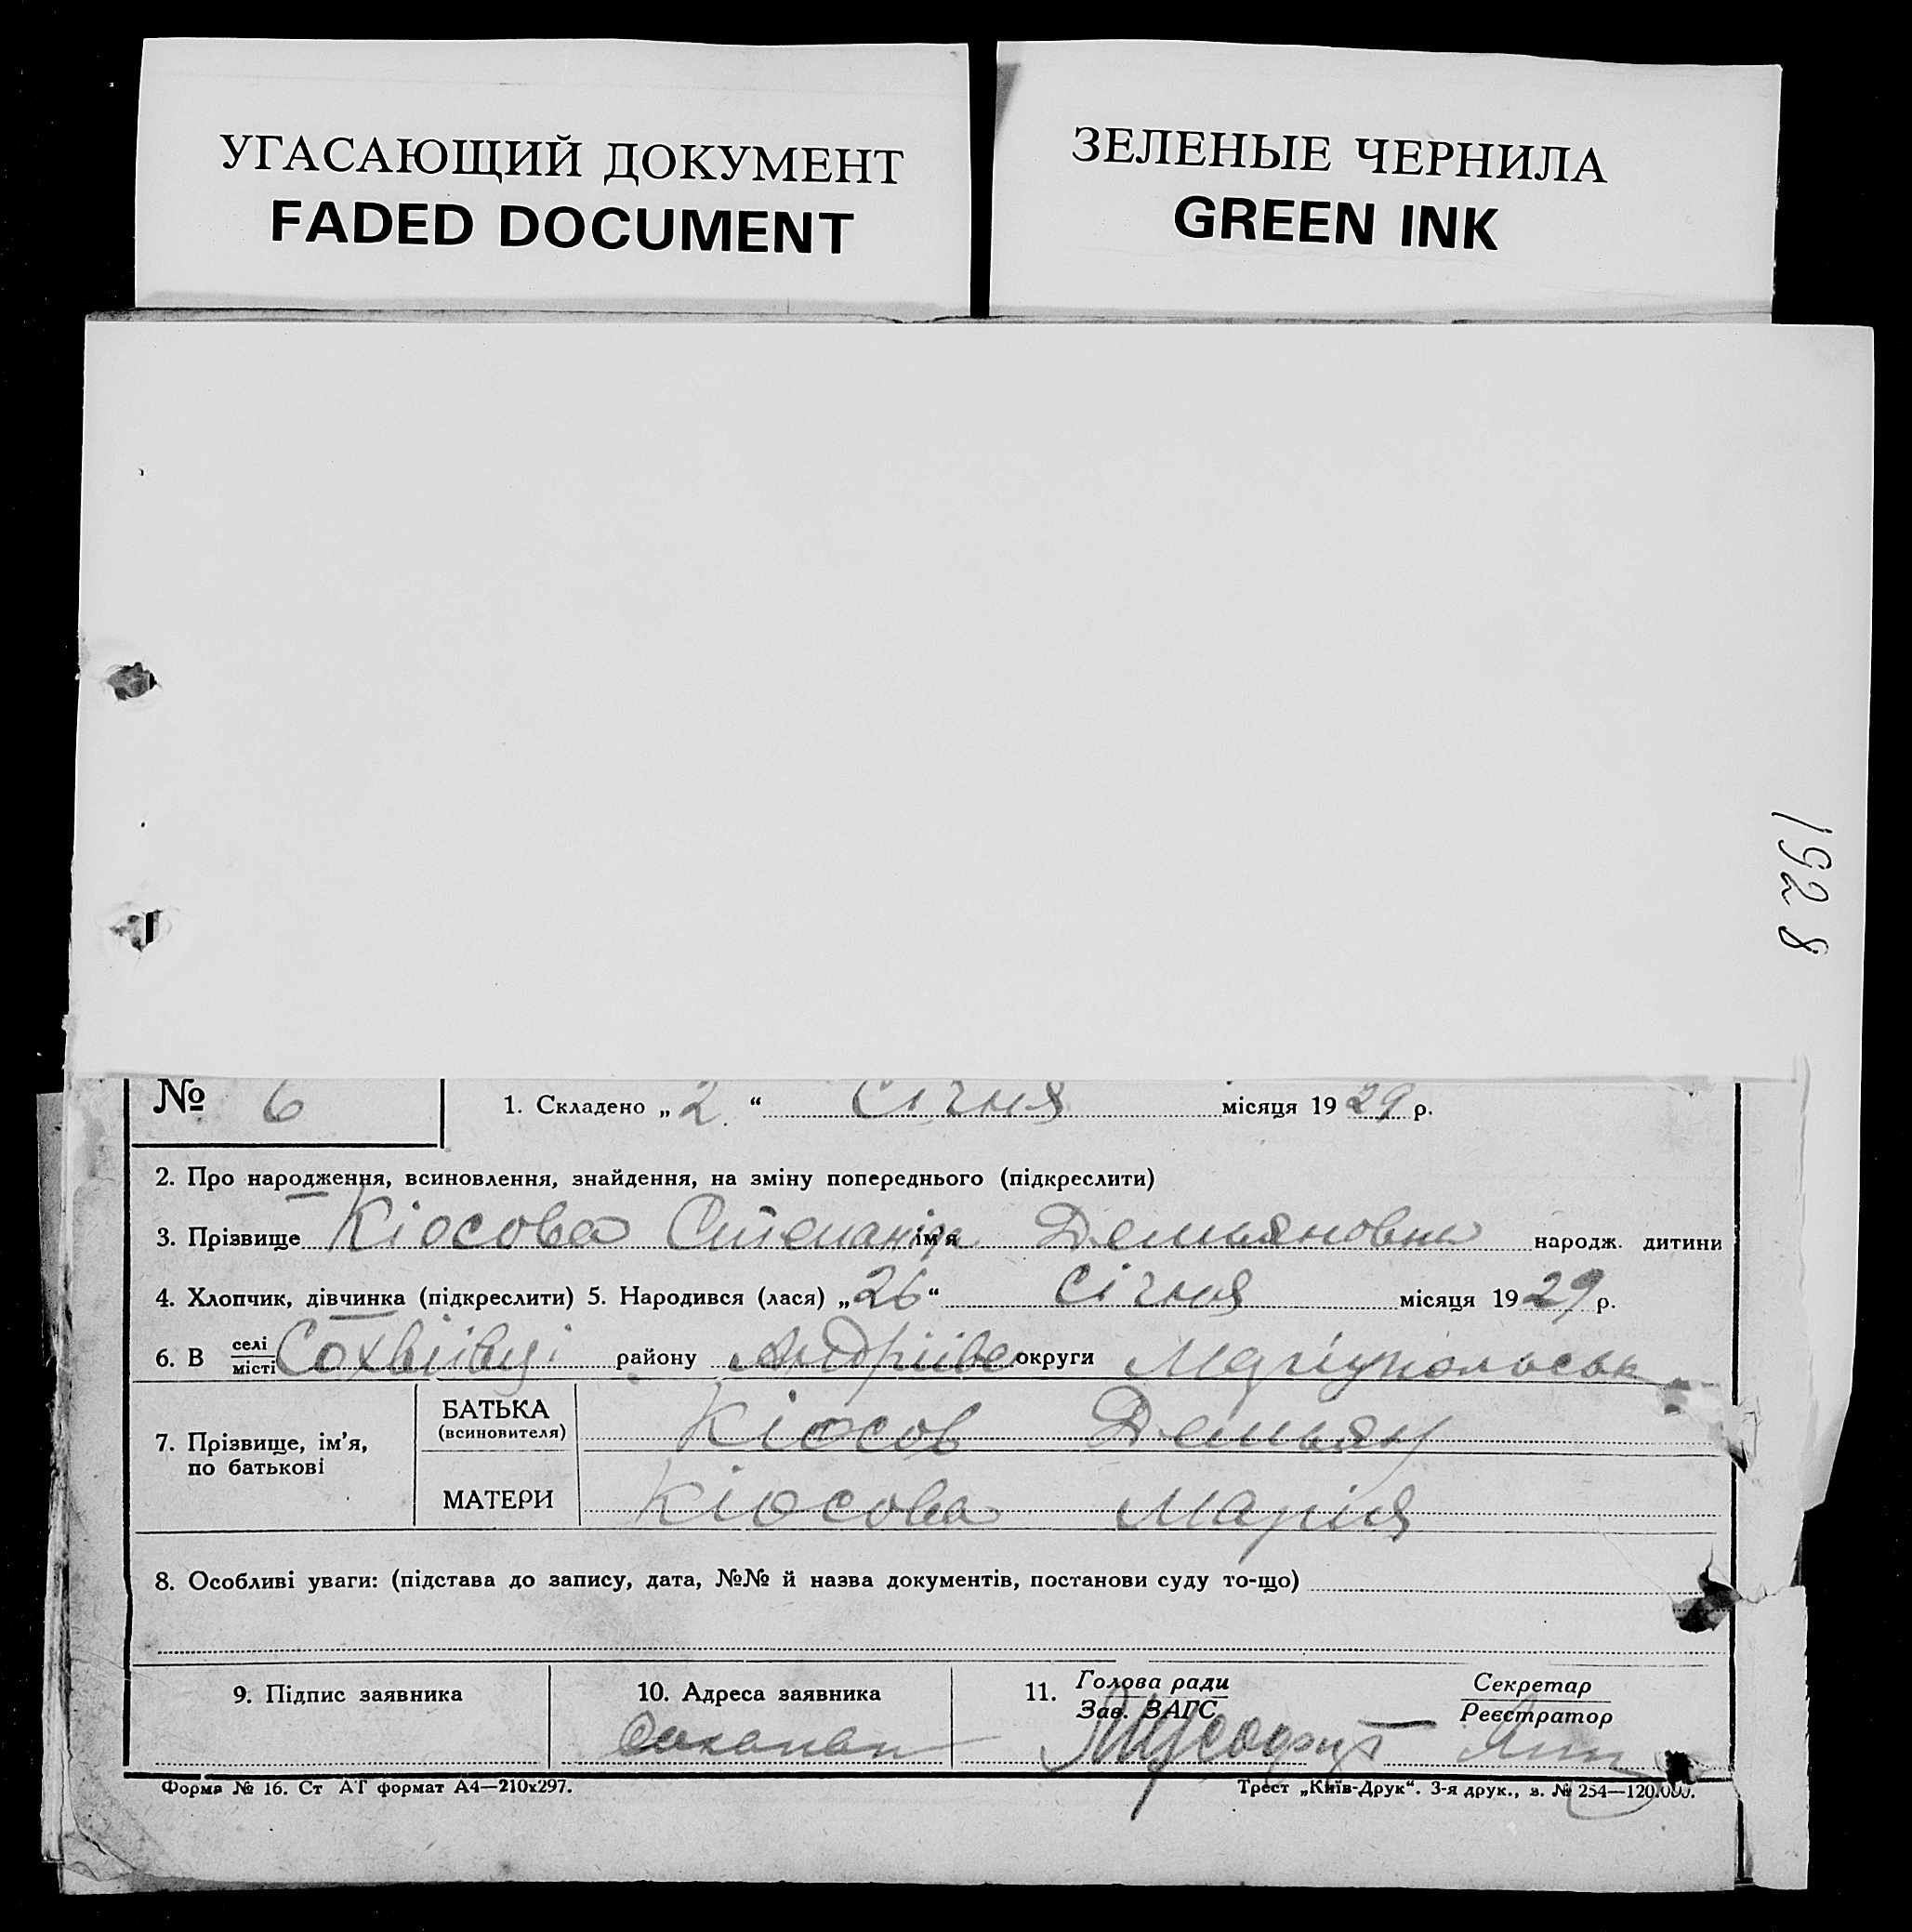 УГАСАЮЩИЙ ДОКУМЕНТ
FADED DOCUMENT
ЗЕЛЕНЫЕ ЧЕРНИЛА
GREEN INK
1928
№ 6
1. Складено „2.“ Січня місяця 1929 р.
2. Про народження, всиновлення, знайдення, на зміну попереднього (підкреслити)
3. Прізвище Кіосова ім'я Демьяновна народж. дитини
4. Хлопчик, дівчинка (підкреслити) 5. Народився (лася) „26“ Січня місяця 1929 р.
6. В селі місті Сохвіівці району Андріівс округи Маріупольськ
7. Прізвище, ім'я, по батькові
БАТЬКА (всиновителя) Кіосов Демьян
МАТЕРИ Кіосова Марія
8. Особливі уваги: (підстава до запису, дата, №№ й назва документів, постанови суду то-що)
9. Підпис заявника
10. Адреса заявника
11. Голова ради Зав. ЗАГС
Секретар Реєстратор
Форма № 16. Ст АТ формат А4—210х297.
Трест „Київ-Друк“. 3-я друк., з. № 254—120.000.